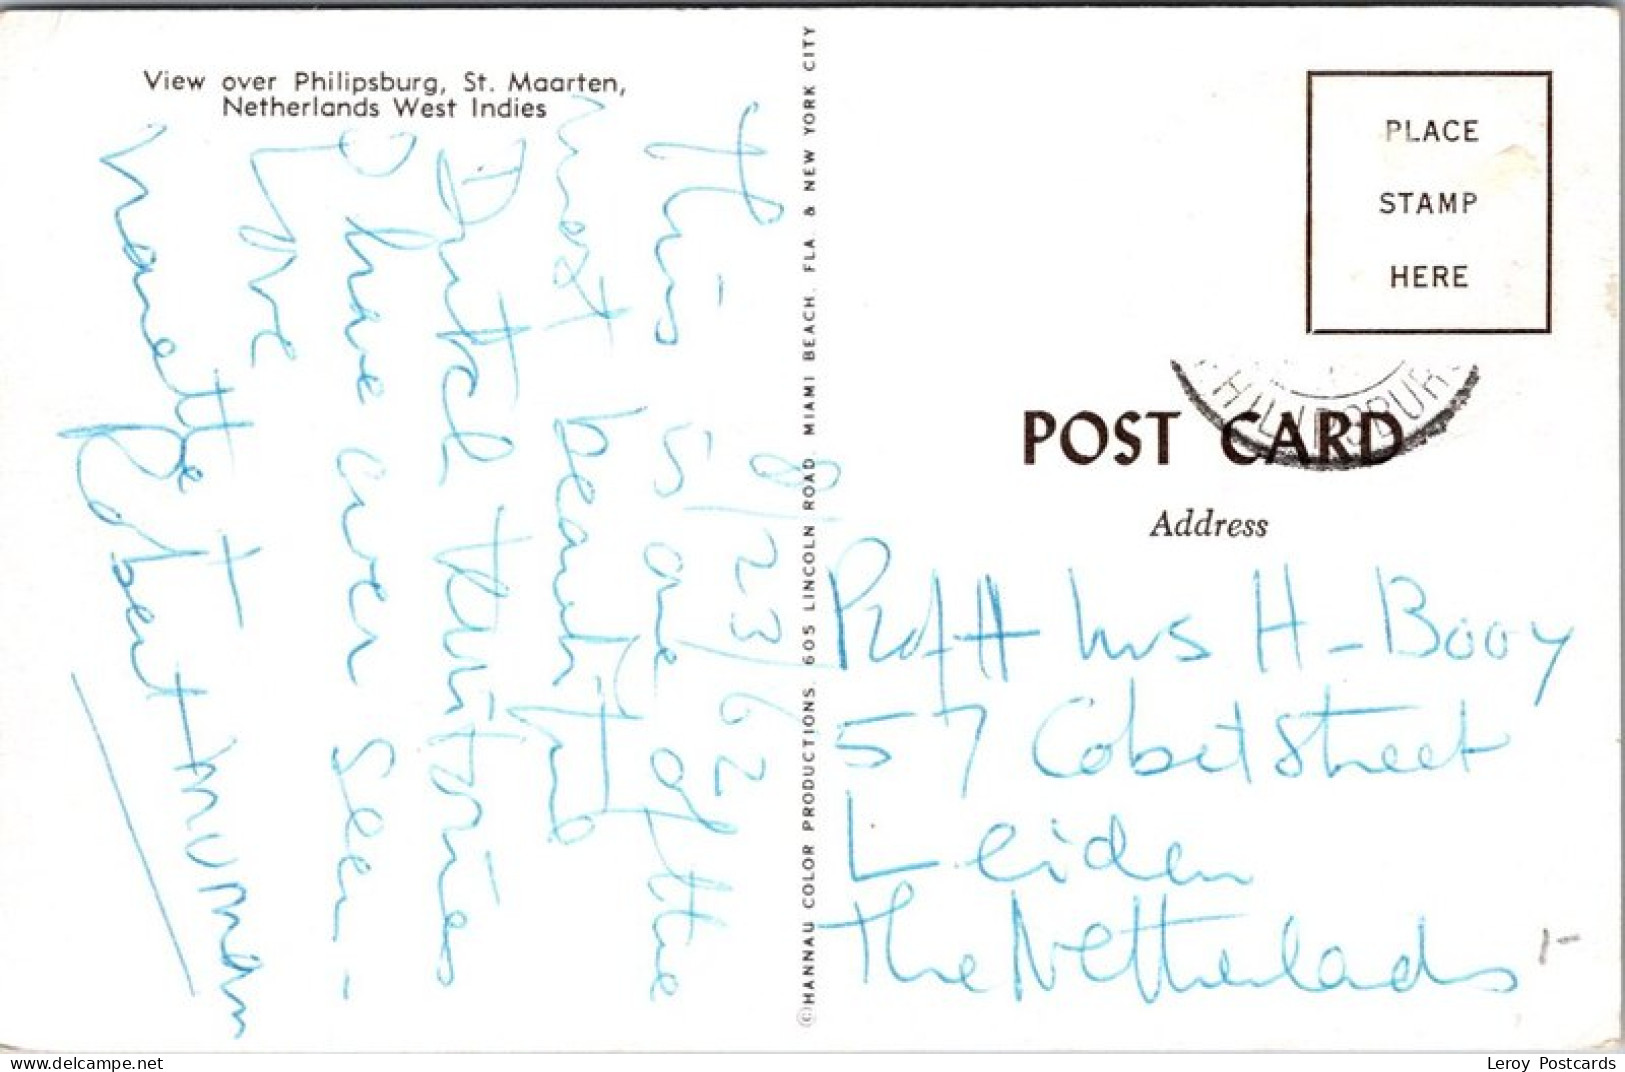 View over Philipsburg, St. Maarten,
Netherlands West Indies
8/23/62
This is one of the
most beautiful
Dutch territories
I have ever seen -
Love
Nanette +
Robert
©HANNAU COLOR PRODUCTIONS, 605 LINCOLN ROAD, MIAMI BEACH, FLA. & NEW YORK CITY
PLACE
STAMP
HERE
PHILIPSBURG
POST CARD
Address
Prof + Mrs H-Booy
57 Cobetstreet
Leiden
The Netherlands
1-
www.delcampe.net
Leroy Postcards